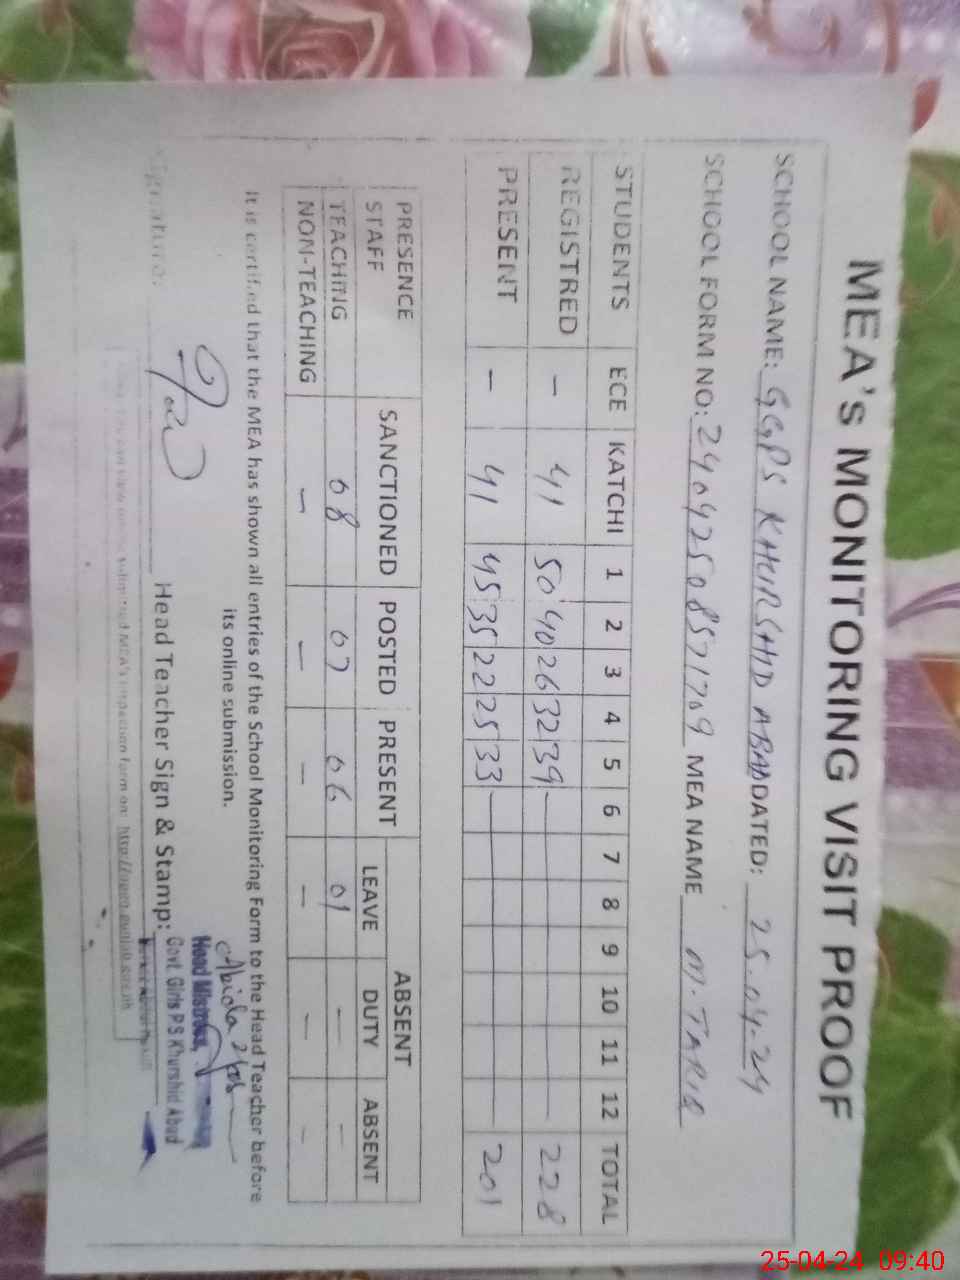 MEA's MONITORING VISIT PROOF
SCHOOL NAME: GGPS KHURSHID ABAD DATED: 25.04.24
SCHOOL FORM NO: 24042508571709 MEA NAME M. TARIQ
STUDENTS ECE KATCHI 1 2 3 4 5 6 7 8 9 10 11 12 TOTAL
REGISTRED — 41 50 40 26 32 39 228
PRESENT — 41 45 35 22 25 33 201
PRESENCE STAFF SANCTIONED POSTED PRESENT ABSENT
LEAVE DUTY ABSENT
TEACHING 08 07 06 01 — —
NON-TEACHING — — — — — —
It is certified that the MEA has shown all entries of the School Monitoring Form to the Head Teacher before
its online submission.
Signature: Head Teacher Sign & Stamp:
Head Mistress,
Govt. Girls P S Khurshid Abad
submitted MEA's inspection form on:
25-04-24 09:40